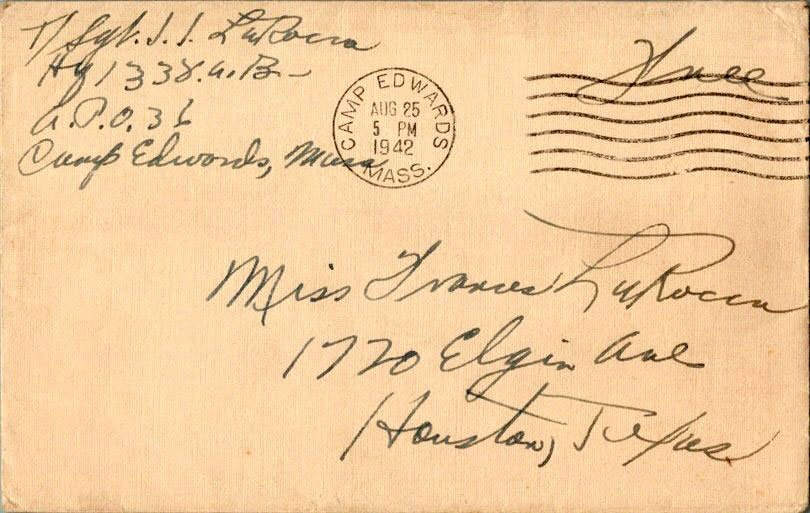 T/Sgt. J. J. LaRocca
Hq 133 F.A. Bn
A.P.O. 36
Camp Edwards, Mass
CAMP EDWARDS
AUG 25
5 PM
1942
MASS.
Free
Miss Frances LaRocca
1720 Elgin Ave
Houston, Texas